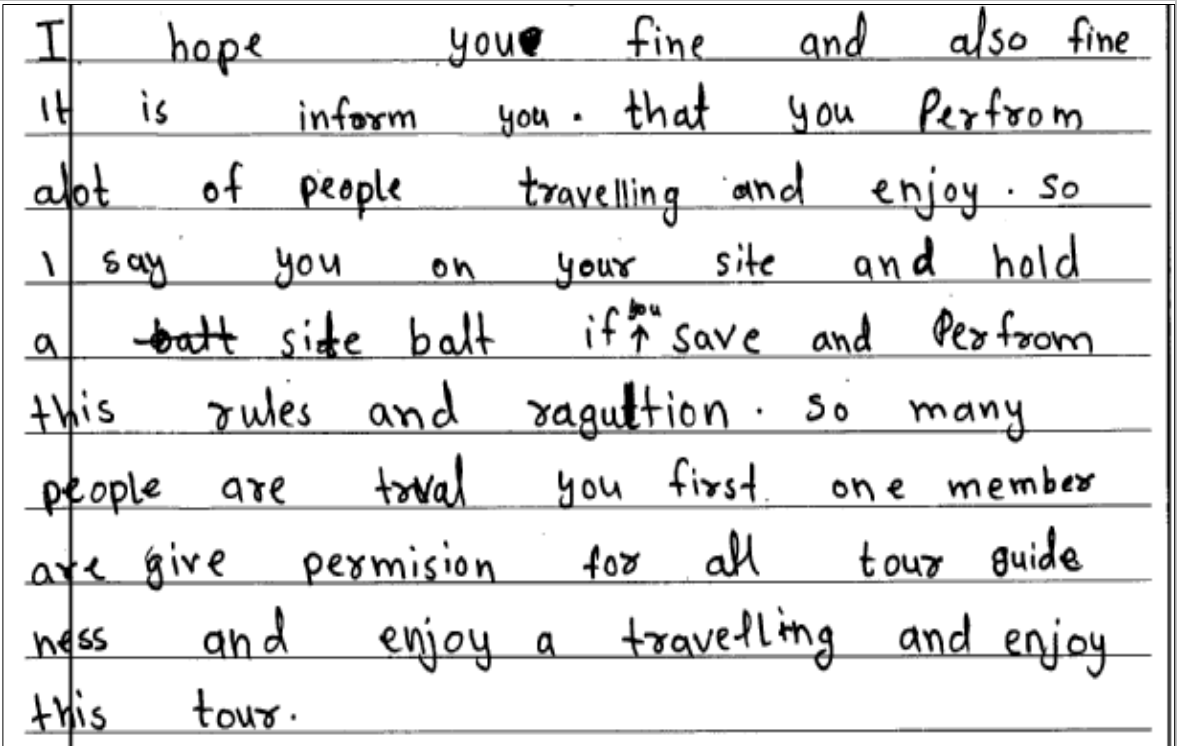 I hope you fine and also fine
It is inform you. that you Perfrom
alot of people travelling and enjoy. so
I say you on your site and hold
a batt side balt if you save and Perfrom
this rules and raguttion. so many
people are trval you first. one member
are give permision for all tour guide
ness and enjoy a travelling and enjoy
this tour.